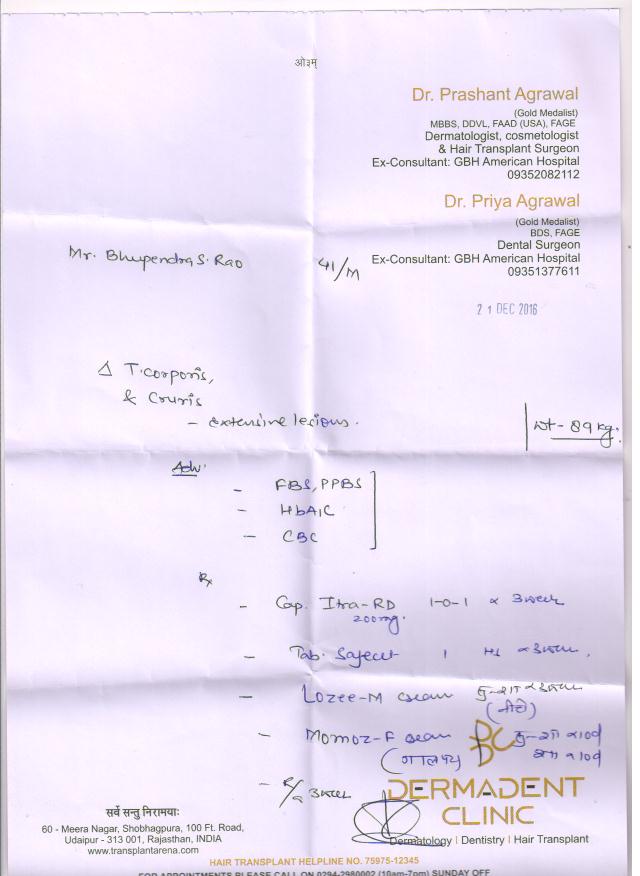 ओ३म्
Dr. Prashant Agrawal
(Gold Medalist)
MBBS, DDVL, FAAD (USA), FAGE
Dermatologist, cosmetologist
& Hair Transplant Surgeon
Ex-Consultant: GBH American Hospital
09352082112
Dr. Priya Agrawal
(Gold Medalist)
BDS, FAGE
Dental Surgeon
Ex-Consultant: GBH American Hospital
09351377611
Mr. Bhupendra S. Rao 41/M
21 DEC 2016
Δ T. corporis,
& Cruris
- extensive lesions.
wt - 89 kg.
Adv.
- FBS, PPBS
- HbA1C
- CBC
Rx
- Cap. Itra-RD 1-0-1 x 3
200mg.
- Tab. 1 HS x 3
- Lozee-M cream सु-शा x 3
(नीचे)
- Momoz-F cream सु-शा x 10d
शा x 10d
- R/a 3
DERMADENT
CLINIC
Dermatology | Dentistry | Hair Transplant
सर्वे सन्तु निरामयाः
60 - Meera Nagar, Shobhagpura, 100 Ft. Road,
Udaipur - 313 001, Rajasthan, INDIA
www.transplantarena.com
HAIR TRANSPLANT HELPLINE NO. 75975-12345
FOR APPOINTMENTS PLEASE CALL ON 0294-2980002 (10am-7pm) SUNDAY OFF